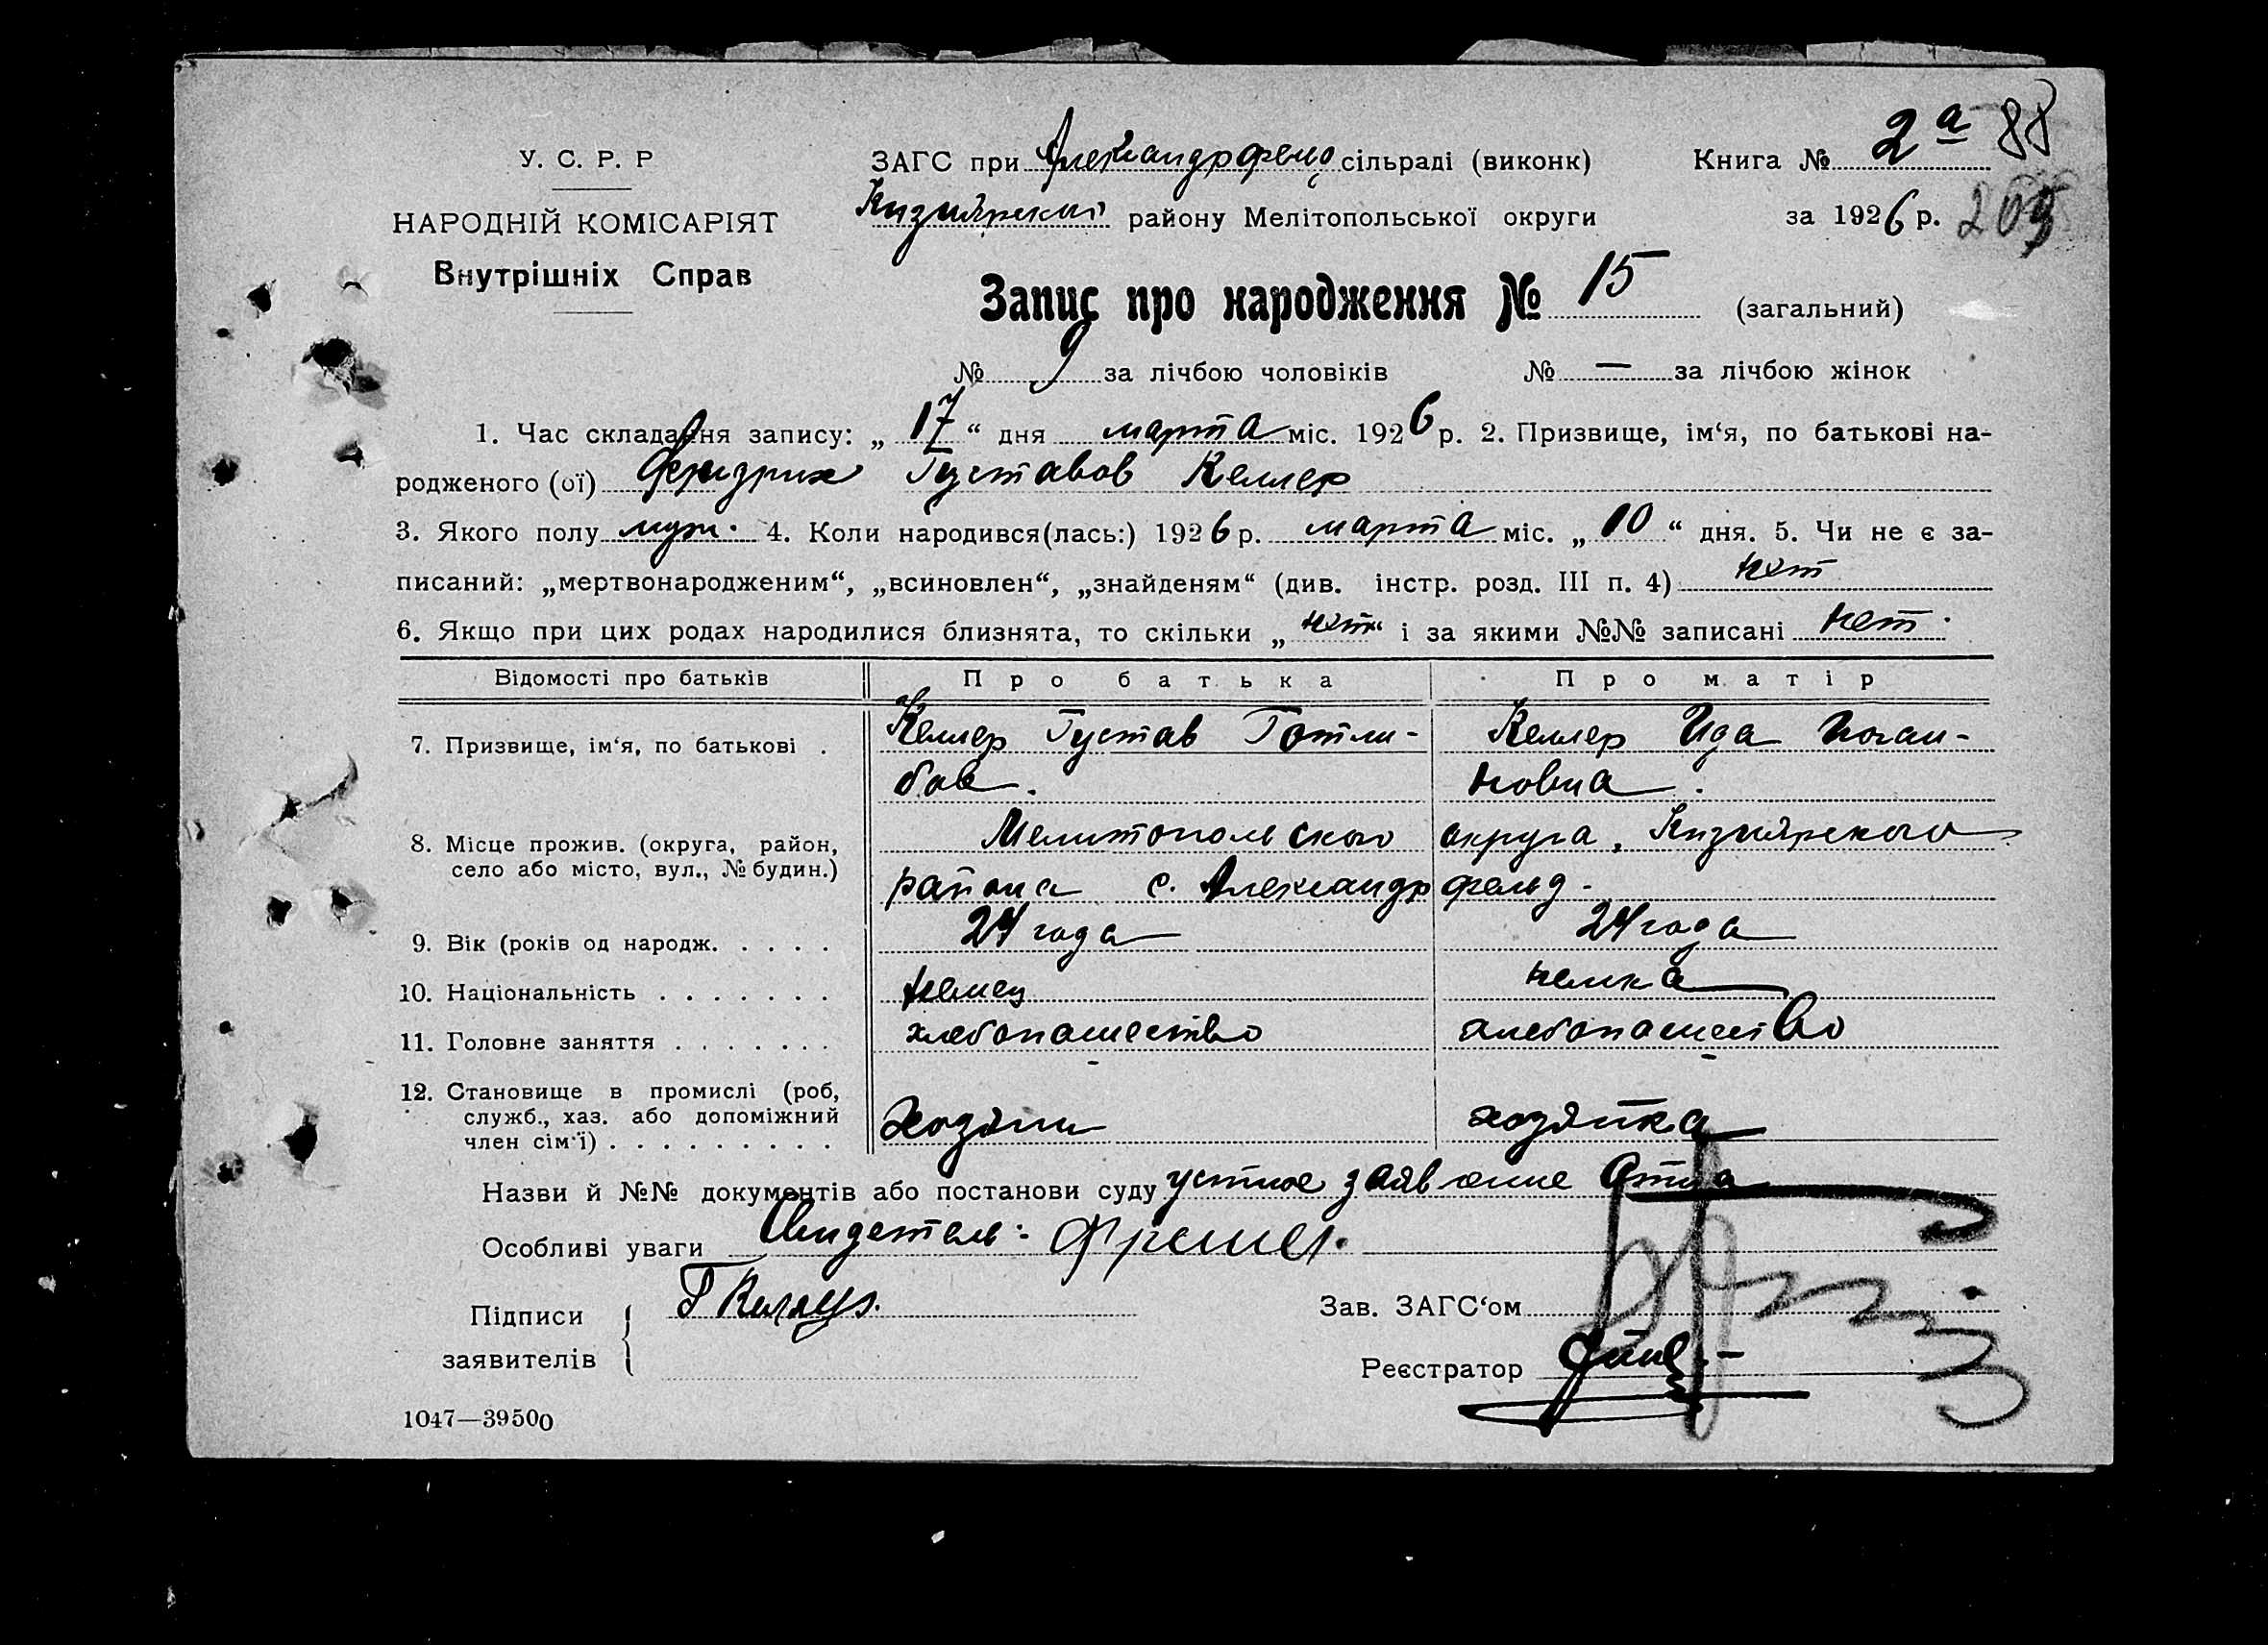 2а 88
У. С. Р. Р ЗАГС при Александрфельд сільраді (виконк) Книга №
НАРОДНІЙ КОМІСАРІЯТ Кизиярского району Мелітопольської округи за 1926 р. 205
Внутрішніх Справ
Запис про народження № 15 (загальний)
№ 9 за лічбою чоловіків № — за лічбою жінок
1. Час складання запису: „ 17 “ дня марта міс. 1926 р. 2. Призвище, ім‘я, по батькові на-
родженого (ої) Фридрих Густавов Келлер
3. Якого полу муж. 4. Коли народився(лась:) 1926 р. марта міс. „ 10 “ дня. 5. Чи не є за-
писаний: „мертвонародженим“, „всиновлен“, „знайденям“ (див. інстр. розд. III п. 4) нет
6. Якщо при цих родах народилися близнята, то скільки „ нет “ і за якими №№ записані нет.
Відомості про батьків Про батька Про матір
7. Призвище, ім‘я, по батькові . Келлер Густав Готли- Келлер Ида Иоган-
бов. новна.
8. Місце прожив. (округа, район, Мелитопольского округа, Кизиярского
село або місто, вул., № будин.) района с. Александрфельд.
9. Вік (років од народж. . . . . 24 года 24 года
10. Національність . . . . . . . немец немка
11. Головне заняття . . . . . . . хлебопашество хлебопашество
12. Становище в промислі (роб,
служб., хаз. або допоміжний хозяин хозяйка
член сім‘ї) . . . . . . . . .
Назви й №№ документів або постанови суду устное заявление отца
Особливі уваги Свидетель:
Підписи Г Келлер. Зав. ЗАГС‘ом
заявителів Реєстратор
1047—39500